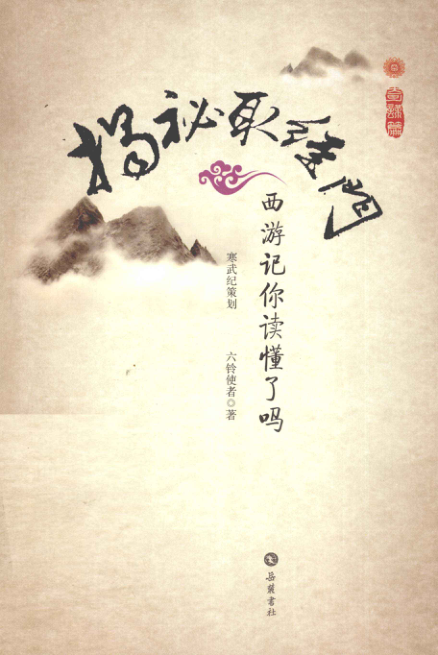 揭秘取经门
西游记你读懂了吗
寒武纪策划
六铃使者◎著
岳麓书社